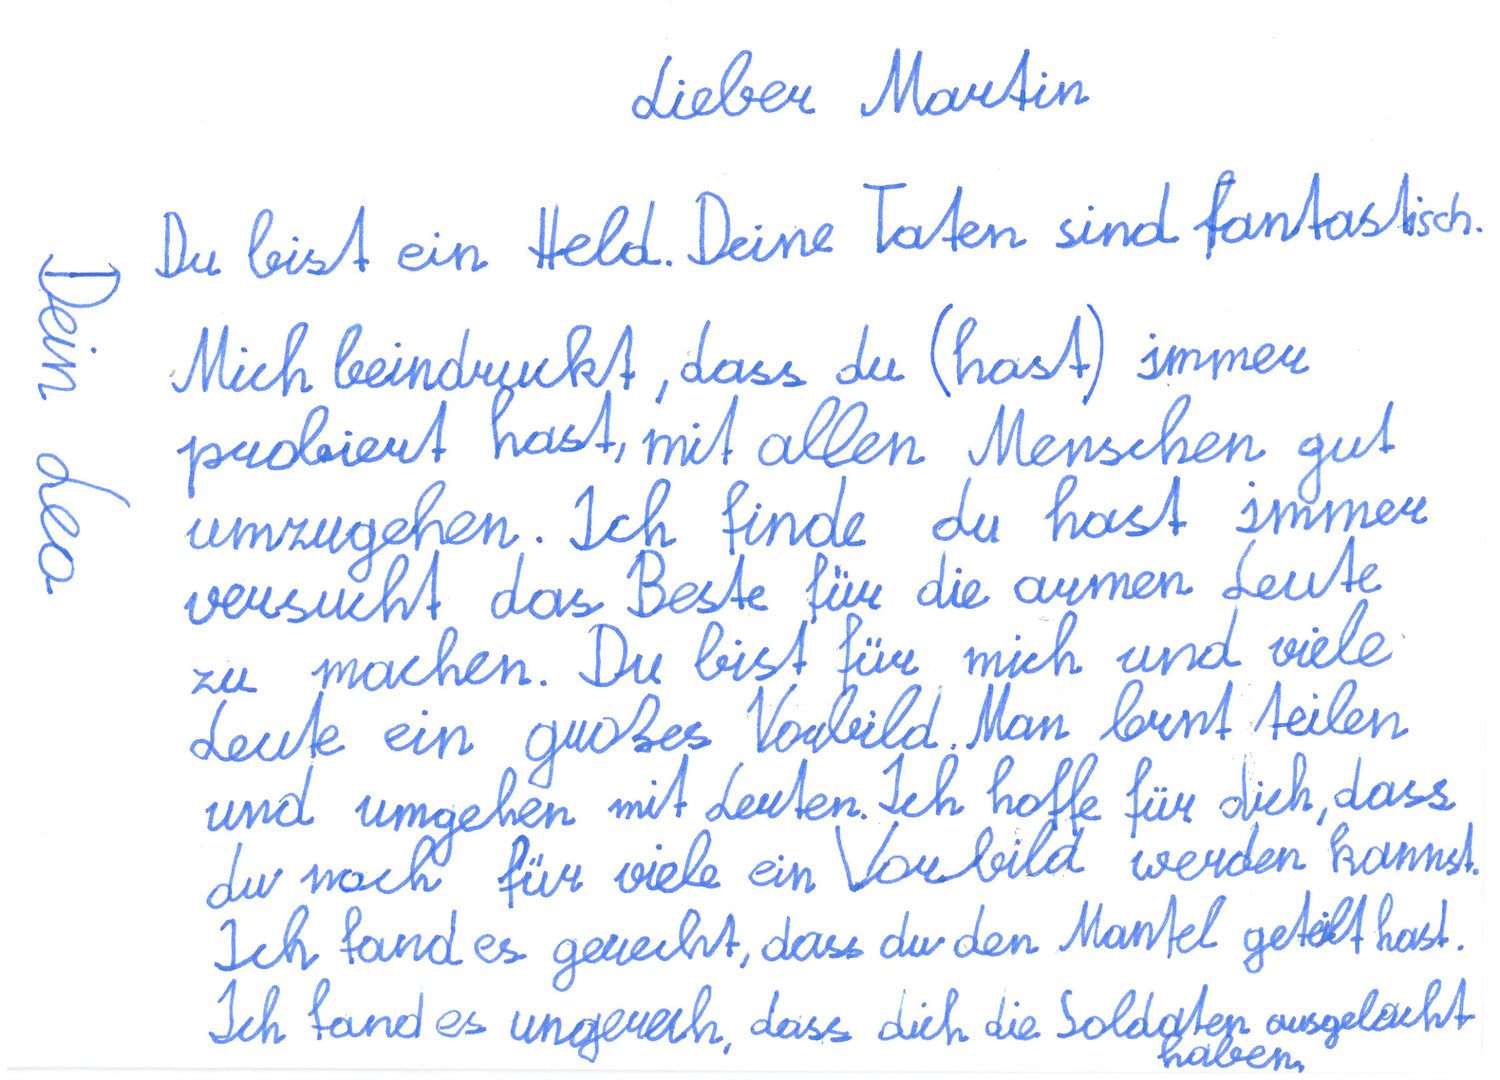 Lieber Martin
Du bist ein Held. Deine Taten sind fantastisch.
Mich beindruckt, dass du (hast) immer
probiert hast, mit allen Menschen gut
umzugehen. Ich finde du hast immer
versucht das Beste für die armen Leute
zu machen. Du bist für mich und viele
Leute ein großes Vorbild. Man lernt teilen
und umgehen mit Leuten. Ich hoffe für dich, dass
du noch für viele ein Vorbild werden kannst.
Ich fand es gerecht, dass du den Mantel geteilt hast.
Ich fand es ungerech, dass dich die Soldaten ausgelacht
haben.
Dein Leo